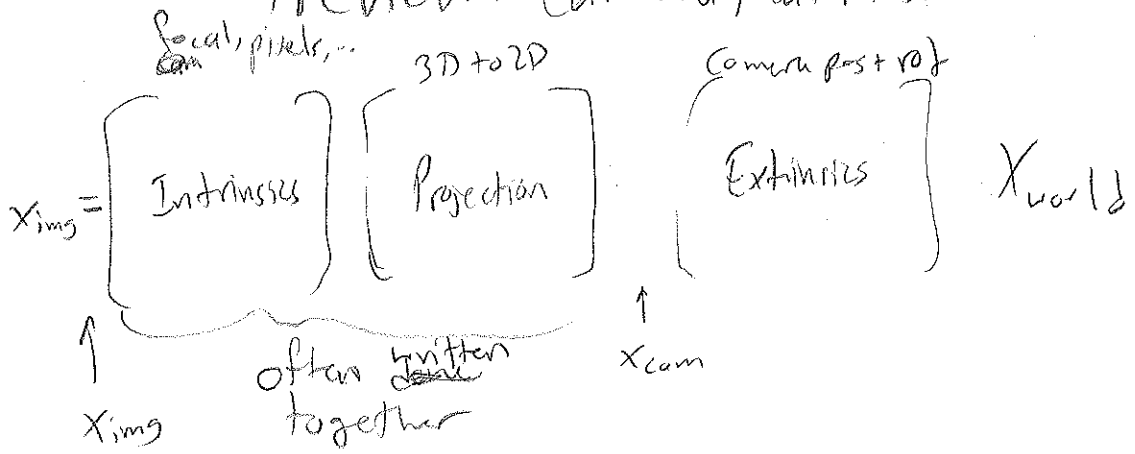 focal, pixels, ...
3D to 2D
Camera pos + rot
x_img = [Intrinsics] [Projection] [Extrinsics] X_world
often written
together
x_img
x_cam